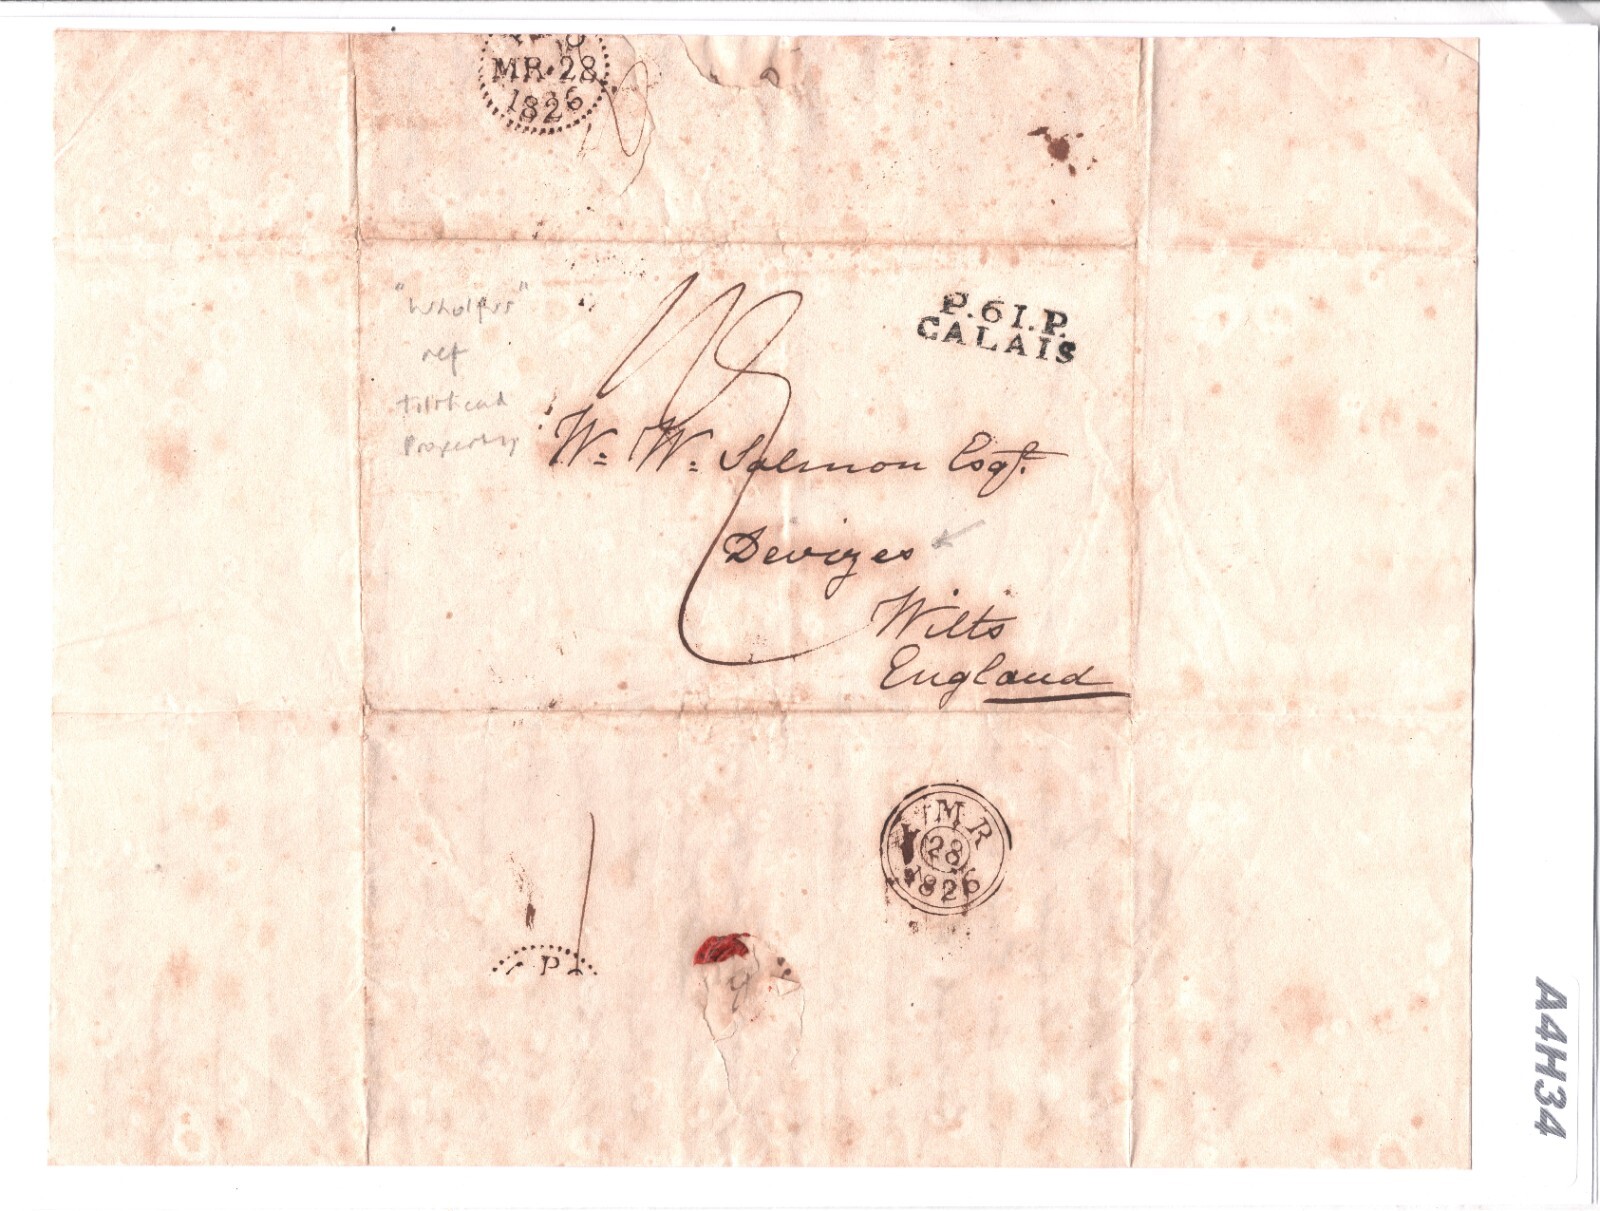 MR·28
1826
P.61.P.
CALAIS
ref
Property
W: W: Salmon Esqr.
Devizes
Wilts
England
MR
28
1826
P
A4H34